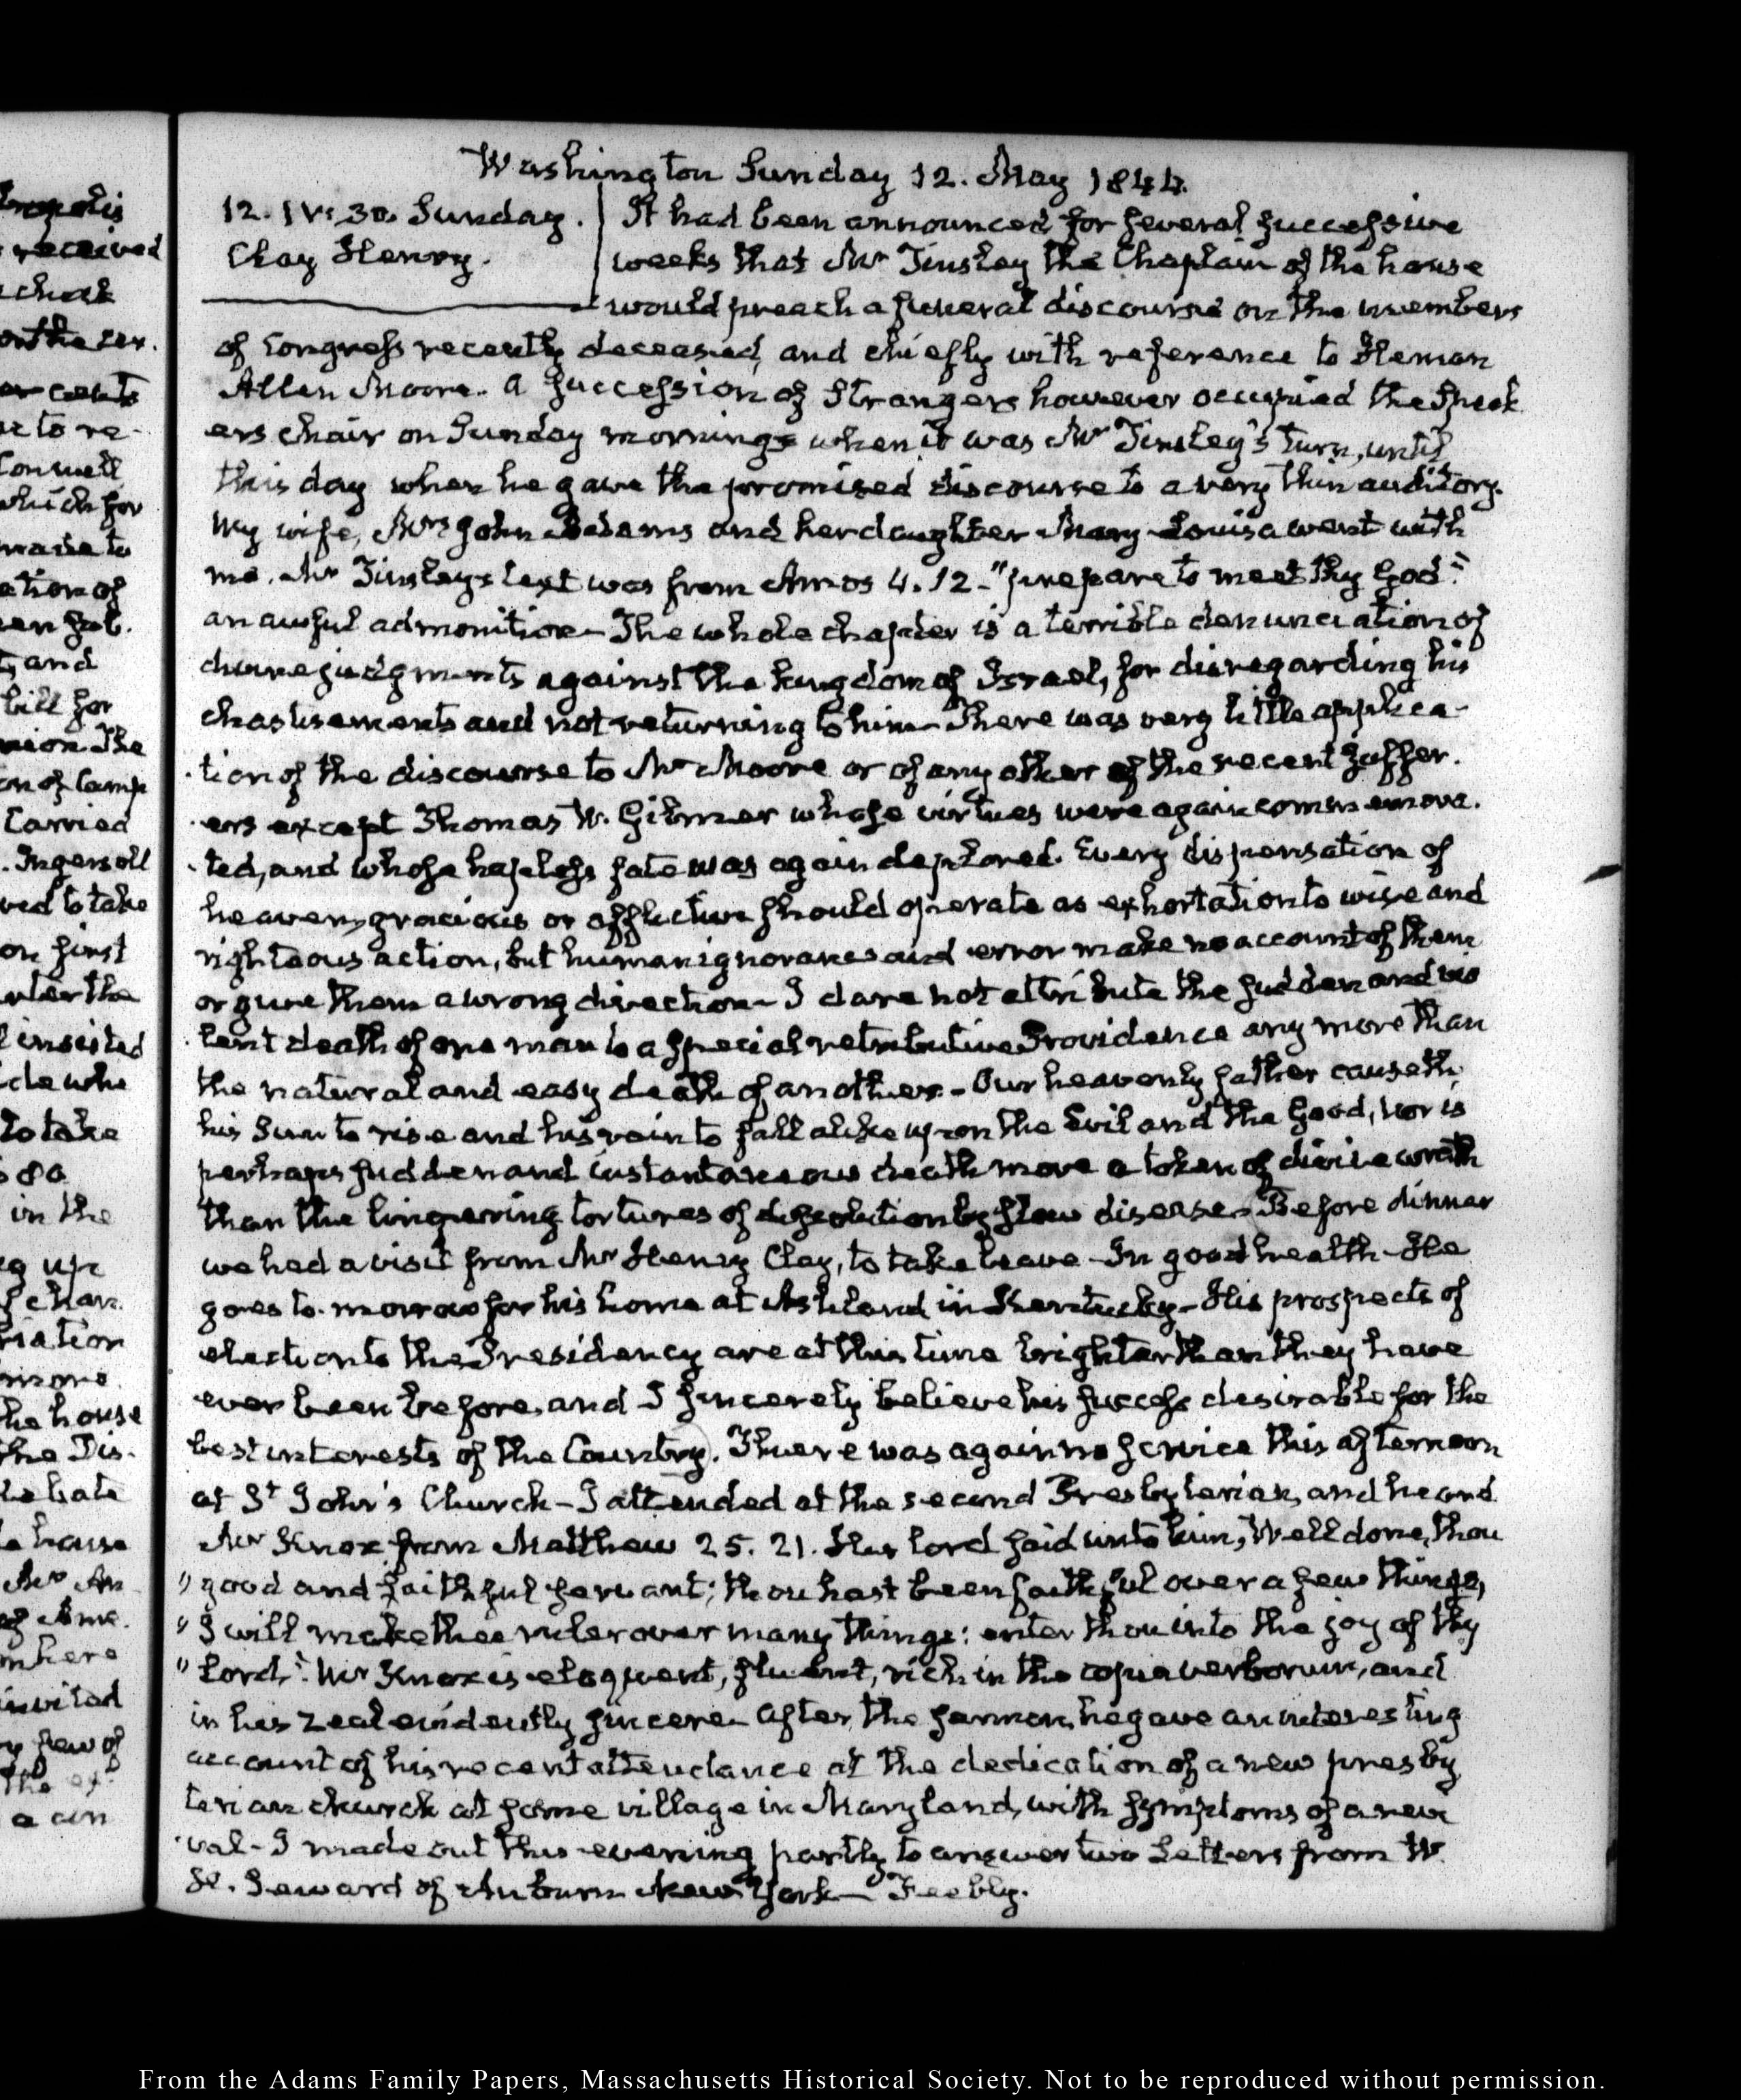 Washington Sunday 12. May 1844.
12. IV:30. Sunday.
Clay Henry.
It had been announced for several successive
weeks that Mr Tinsley the Chaplain of the house
would preach a funeral discourse on the members
of Congress recently deceased, and chiefly with reference to Heman
Allen Moore. a succession of strangers however occupied the Speak
ers chair on Sunday mornings when it was Mr Tinsley's turn, until
this day when he gave the promised discourse to a very thin auditory.
My wife, Mrs John Adams and her daughter Mary Louisa went with
me. Mr Tinsley's text was from Amos 4. 12. "prepare to meet thy God."
an awful admonition- The whole chapter is a terrible denunciation of
divine judgments against the kingdom of Israel, for disregarding his
chastisements and not returning to him- There was very little applica-
tion of the discourse to Mr Moore or of any other of the recent suffer.
ers except Thomas W. Gilmer whose virtues were again commemora.
ted, and whose hapless fate was again deplored. Every dispensation of
heaven, gracious or afflictive should operate as exhortation to wise and
righteous action, but human ignorance and error make no account of them
or give them a wrong direction- I dare not attribute the sudden and vio
lent death of one man to a special retributive Providence any more than
the natural and easy death of another.- Our heavenly father causeth
his Sun to rise and his rain to fall alike upon the Evil and the Good, nor is
perhaps sudden and instantaneous death more a token of divine wrath
than the lingering tortures of dissolution by slow disease- Before dinner
we had a visit from Mr Henry Clay, to take leave- In good health- He
goes to-morrow for his home at Ashland in Kentucky- His prospects of
election to the Presidency are at this time brighter than they have
ever been before, and I sincerely believe his success desirable for the
best interests of the Country. There was again no service this afternoon
at St John's Church- I attended at the second Presbyterian, and heard
Mr Knox from Matthew 25. 21. His lord said unto him, Well done, thou
"good and faithful servant; thou hast been faithful over a few things,
"I will make thee ruler over many things: enter thou into the joy of thy
"lord." Mr Knox is eloquent, fluent, rich in the copia verborum, and
in his zeal evidently sincere- After the sermon, he gave an interesting
account of his recent attendance at the dedication of a new presby
terian church at some village in Maryland, with symptoms of a revi
val- I made out this evening partly to answer two Letters from W.
H. Seward of Auburn New York- Feebly.
From the Adams Family Papers, Massachusetts Historical Society. Not to be reproduced without permission.